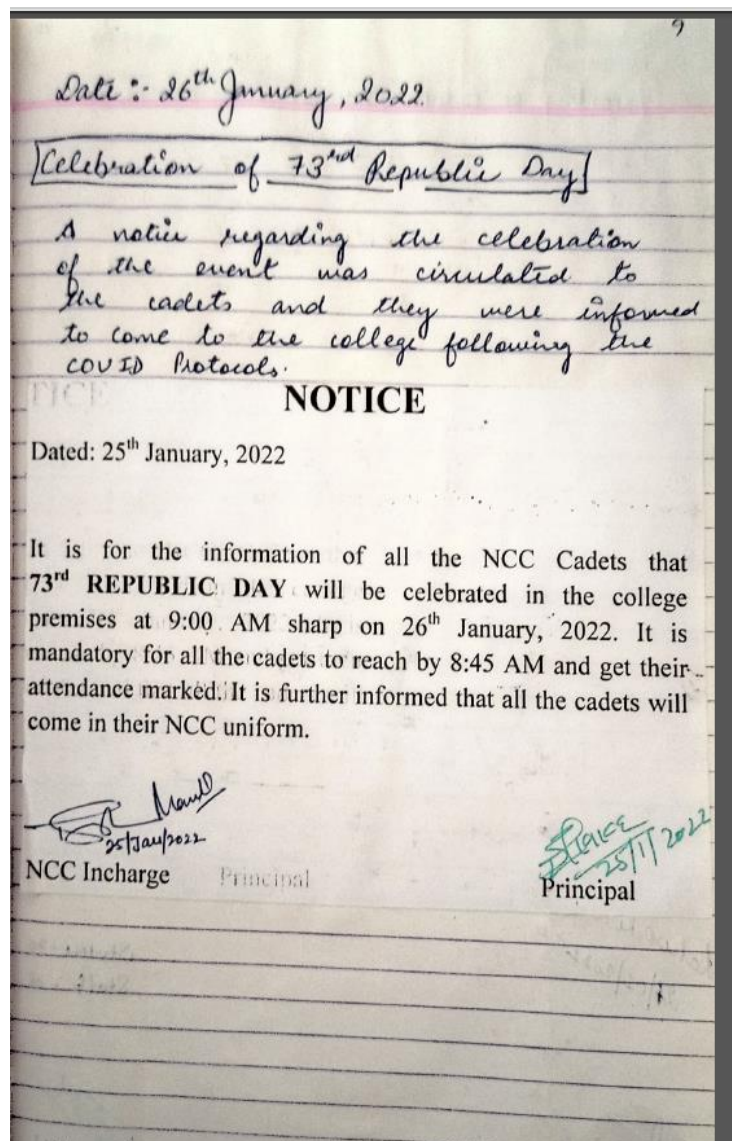 9
Date :- 26th January, 2022.
Celebration of 73rd Republic Day
A notice regarding the celebration
of the event was circulated to
the cadets and they were informed
to come to the college following the
COVID Protocols.
NOTICE
Dated: 25th January, 2022
It is for the information of all the NCC Cadets that
73rd REPUBLIC DAY will be celebrated in the college
premises at 9:00 AM sharp on 26th January, 2022. It is
mandatory for all the cadets to reach by 8:45 AM and get their
attendance marked. It is further informed that all the cadets will
come in their NCC uniform.
25/Jan/2022
25/1/2022
NCC Incharge Principal Principal